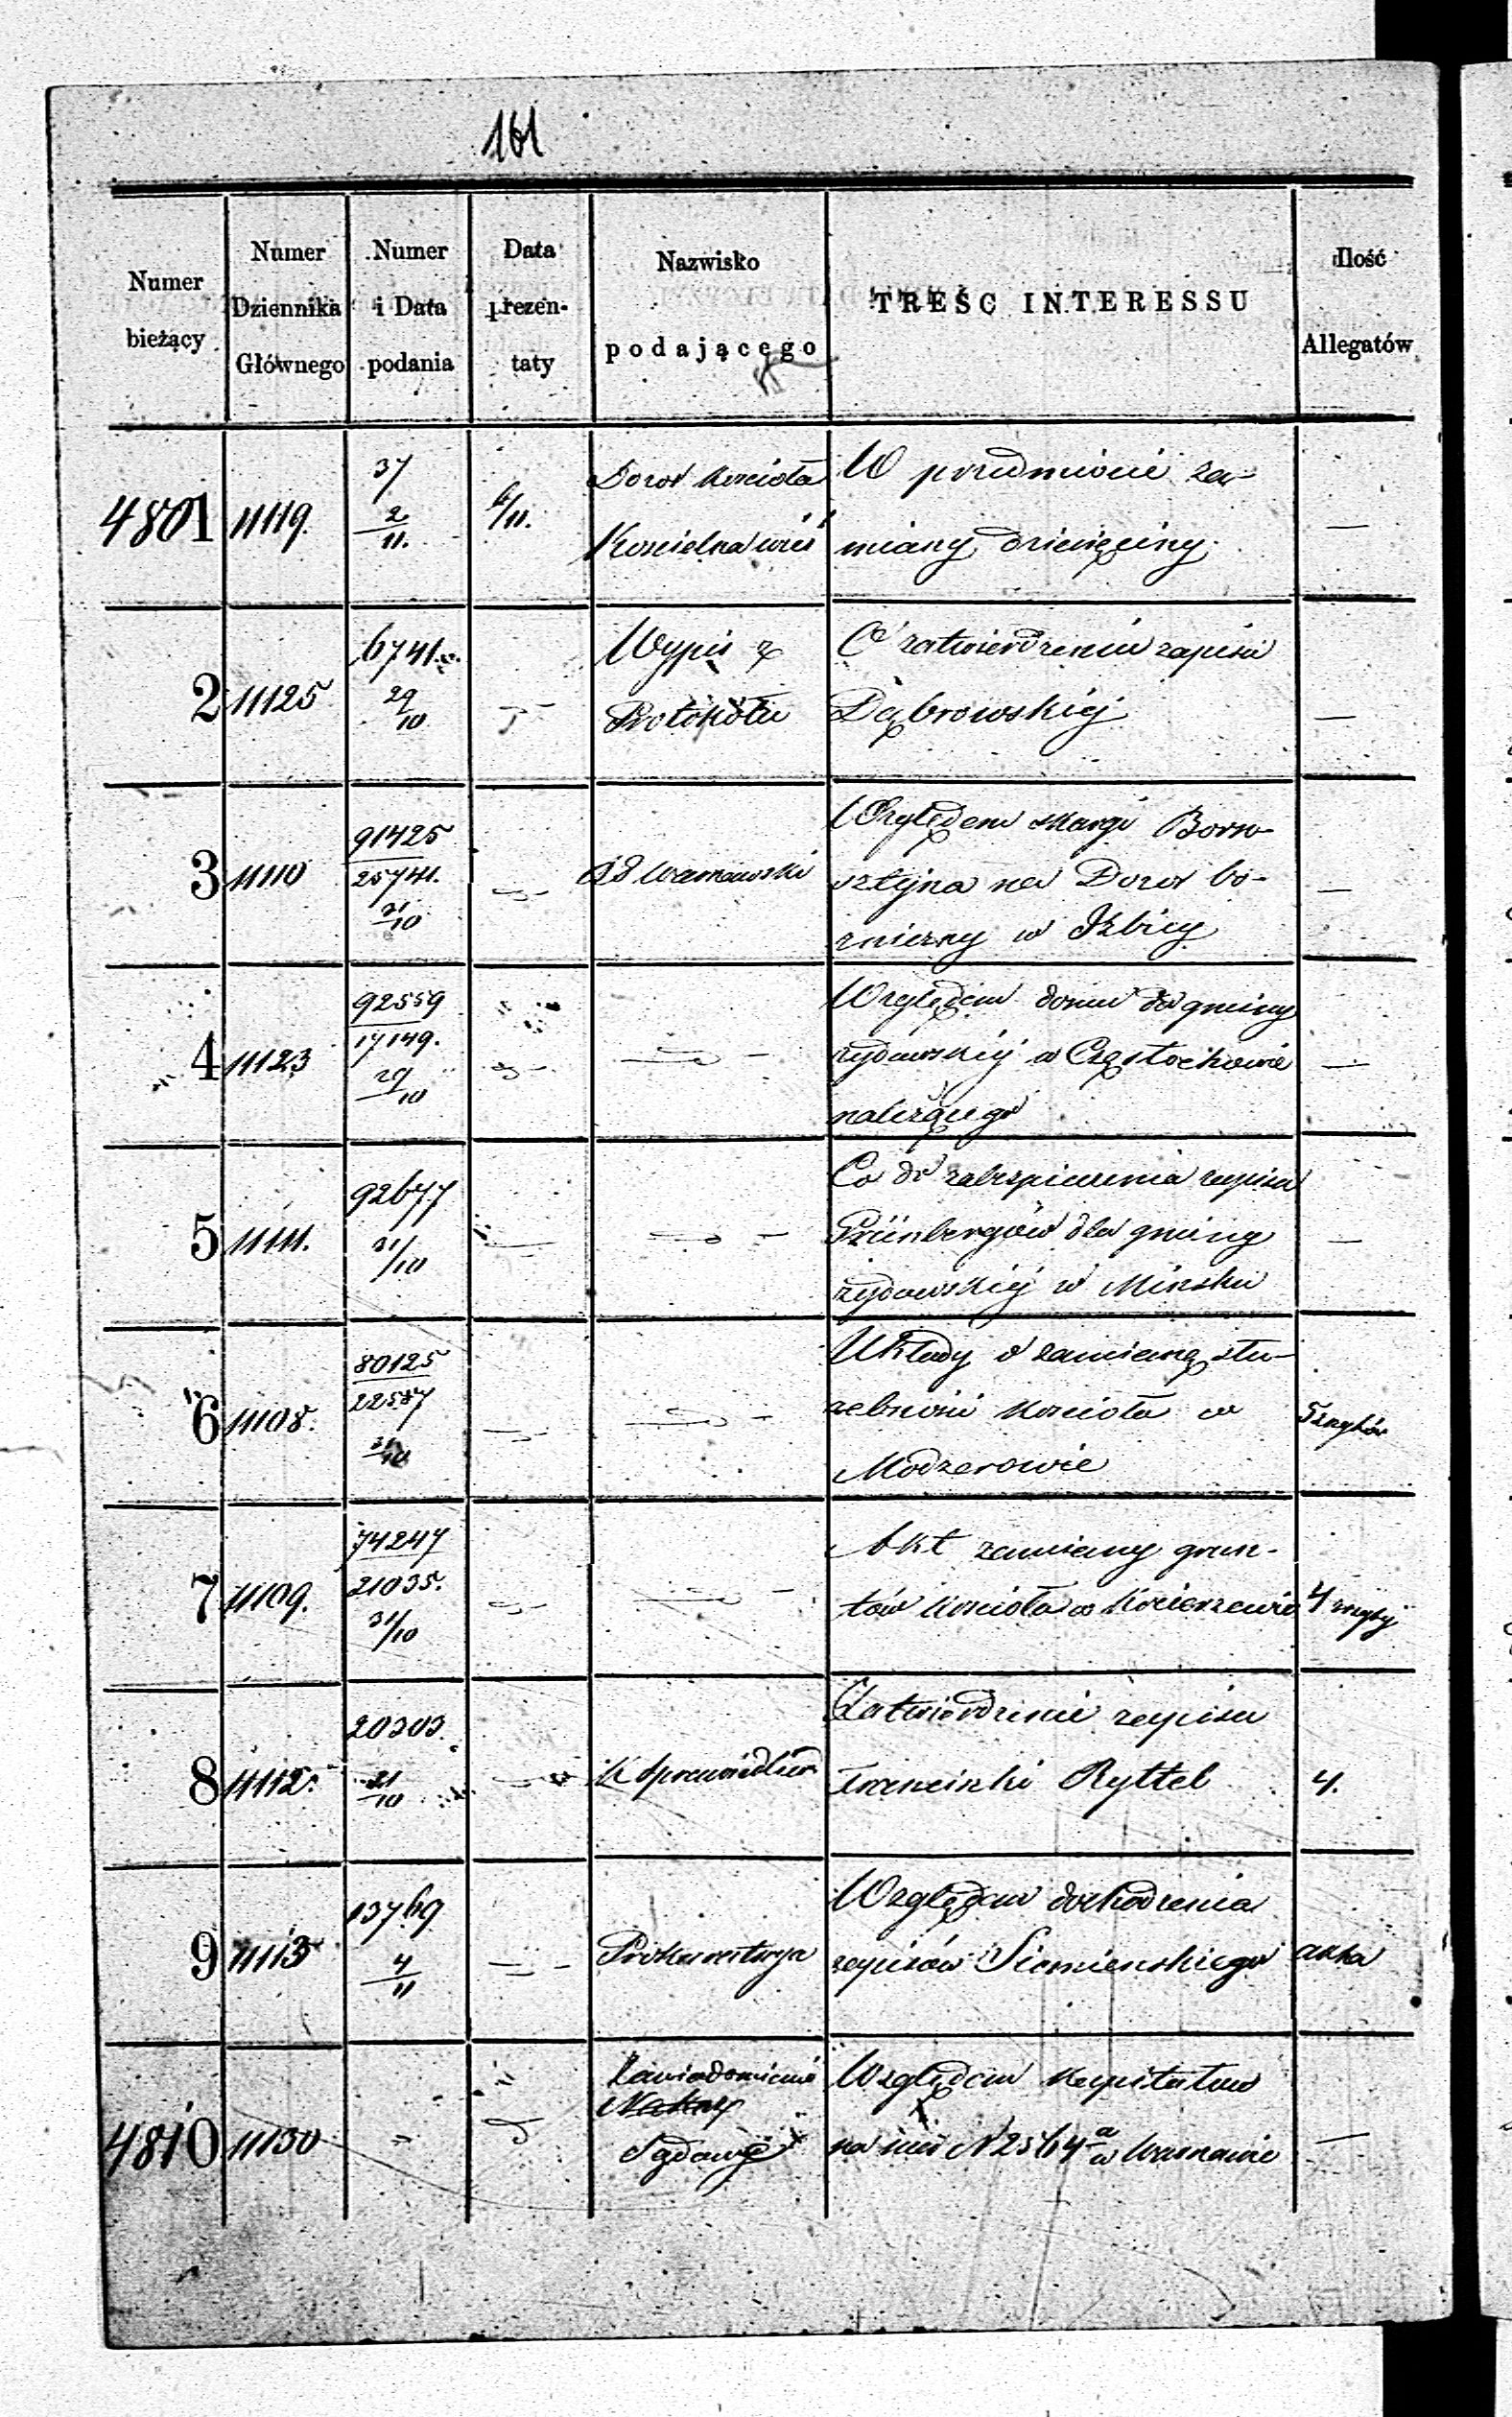 161
Numer bieżący
Numer Dziennika Głównego
Numer i Data podania
Data prezentaty
Nazwisko podającego
TREŚĆ INTERESSU
Ilość Allegatów
4801 11119. 37 6/11. Dozor Kościoła W przedmiocie za-
2/11. Kościelna wieś miany dziesięciny. —
2 11125 6741. Wypis z O zatwierdzeniu zapisu
29/10 Protokółu Dąbrowskiej —
3 11110 91425 Względem skargi Born-
25741. Warszawski sztejna na Dozor bo-
31/10 żniczny w Izbicy —
4 11123 92559 Względem domu do gminy
17149. żydowskiej w Częstochowie
29/10 należącego —
5 11111. 92677 Co do zabezpieczenia zapisu
31/10 Grünbergów dla gminy
żydowskiej w Mińsku —
6 11108. 80125 Układy o zamianę słu-
22587 żebności kościoła w
31/10 Modzerowie
7 11109. 74247 Akt zamiany grun-
21035. tów kościoła w Kocierzewie 4
31/10
8 11112. 20303. Zatwierdzenie zapisu
21/10 K Sprawiedliw Franciszki Ryttel 4.
9 11113 13769 Względem dochodzenia
4/11 Prokuratorya zapisów Siemieńskiego akta
4810 11130 Zawiadomienie Względem kapitałów
Sądowe na nier N 2564 a w Warszawie —